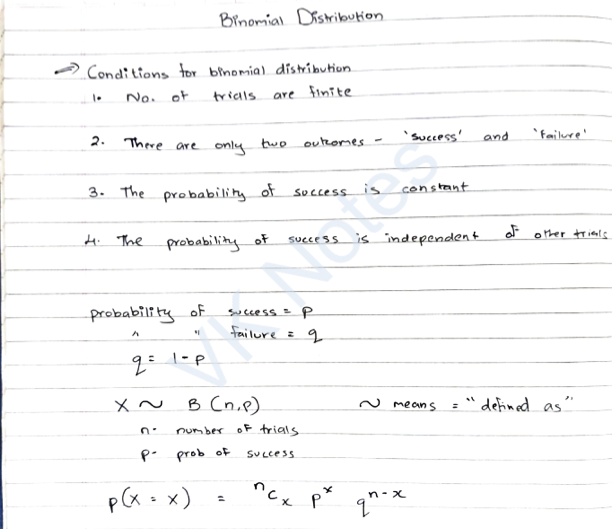 Binomial Distribution
→ Conditions for binomial distribution
1. No. of trials are finite
2. There are only two outcomes - 'success' and 'failure'
3. The probability of success is constant
4. The probability of success is independent of other trials
probability of success = p
" " failure = q
q = 1 - p
X ~ B (n,p) ~ means = "defined as"
n - number of trials
p - prob of success
p(X = x) = ⁿCₓ pˣ qⁿ⁻ˣ
VK Notes